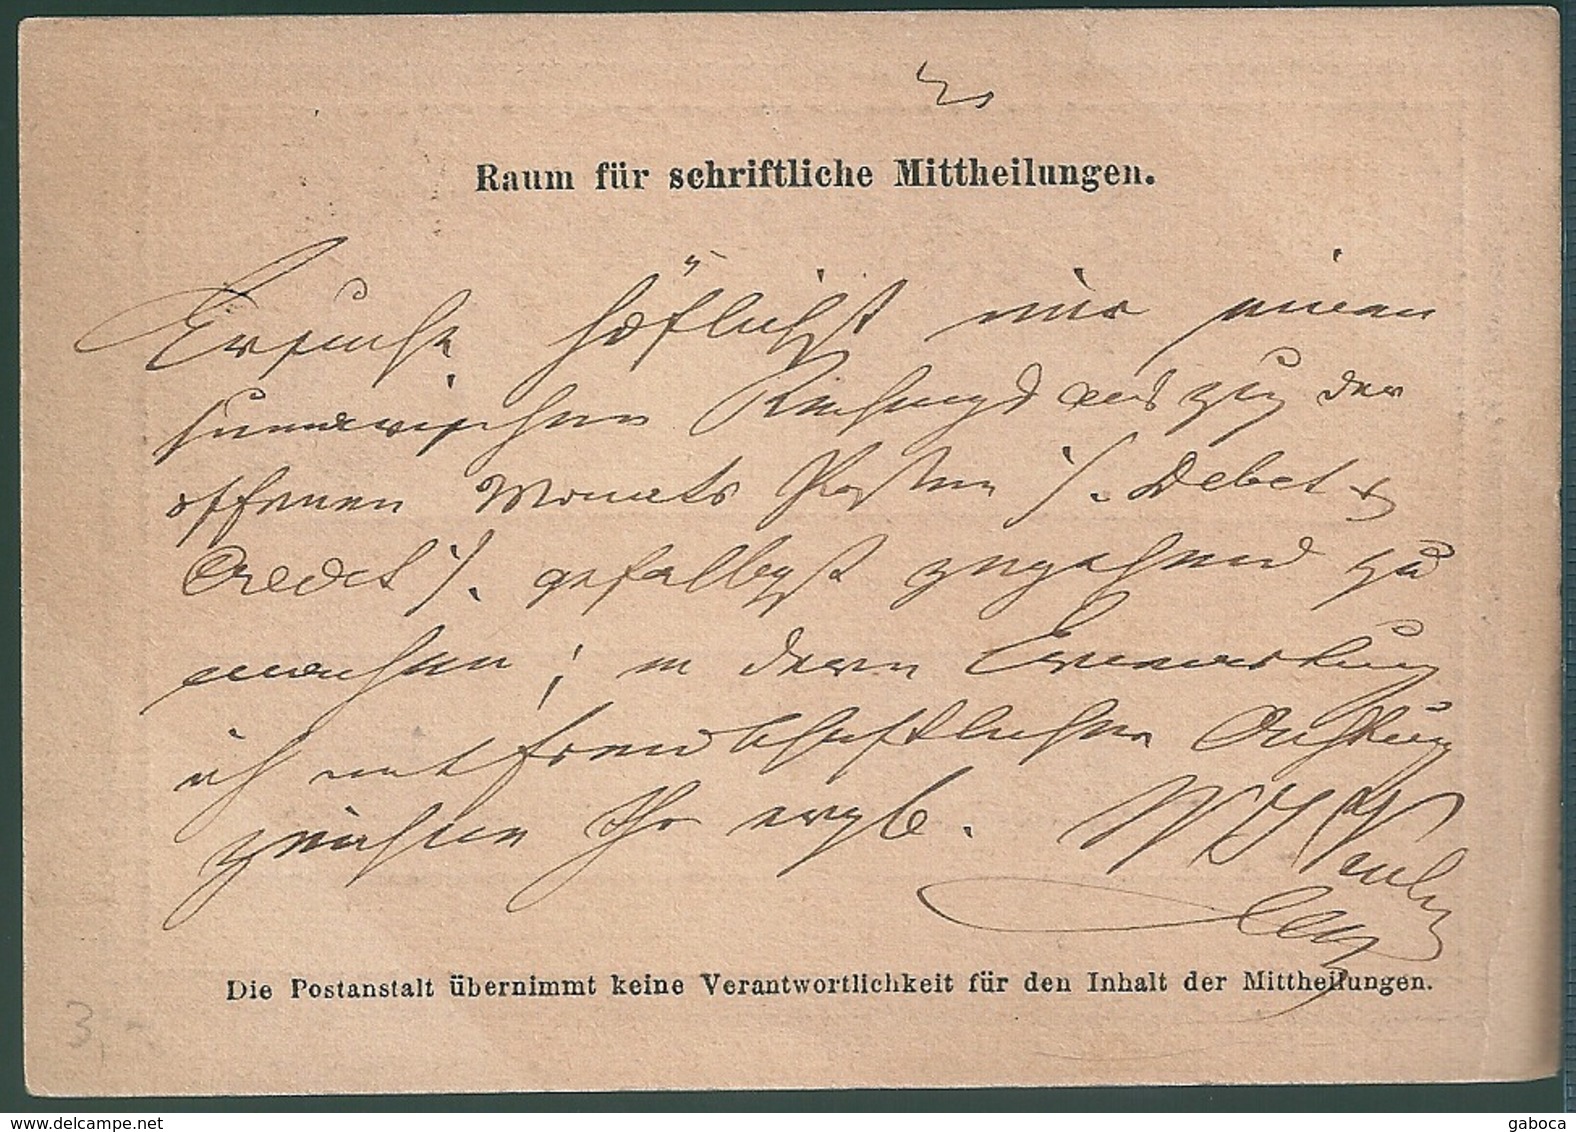 Raum für schriftliche Mittheilungen.
Ersuche höflichst mir einen
summarischen Rechnungs auszug der
offenen Monats Posten ./. Debet &
Credit ./. gefälligst zugehend zu
machen; in deren Erwartung
ich mit freundschaftlicher Achtung
zeichne Ihr ergb.
Die Postanstalt übernimmt keine Verantwortlichkeit für den Inhalt der Mittheilungen.
3,-
www.delcampe.net
gaboca